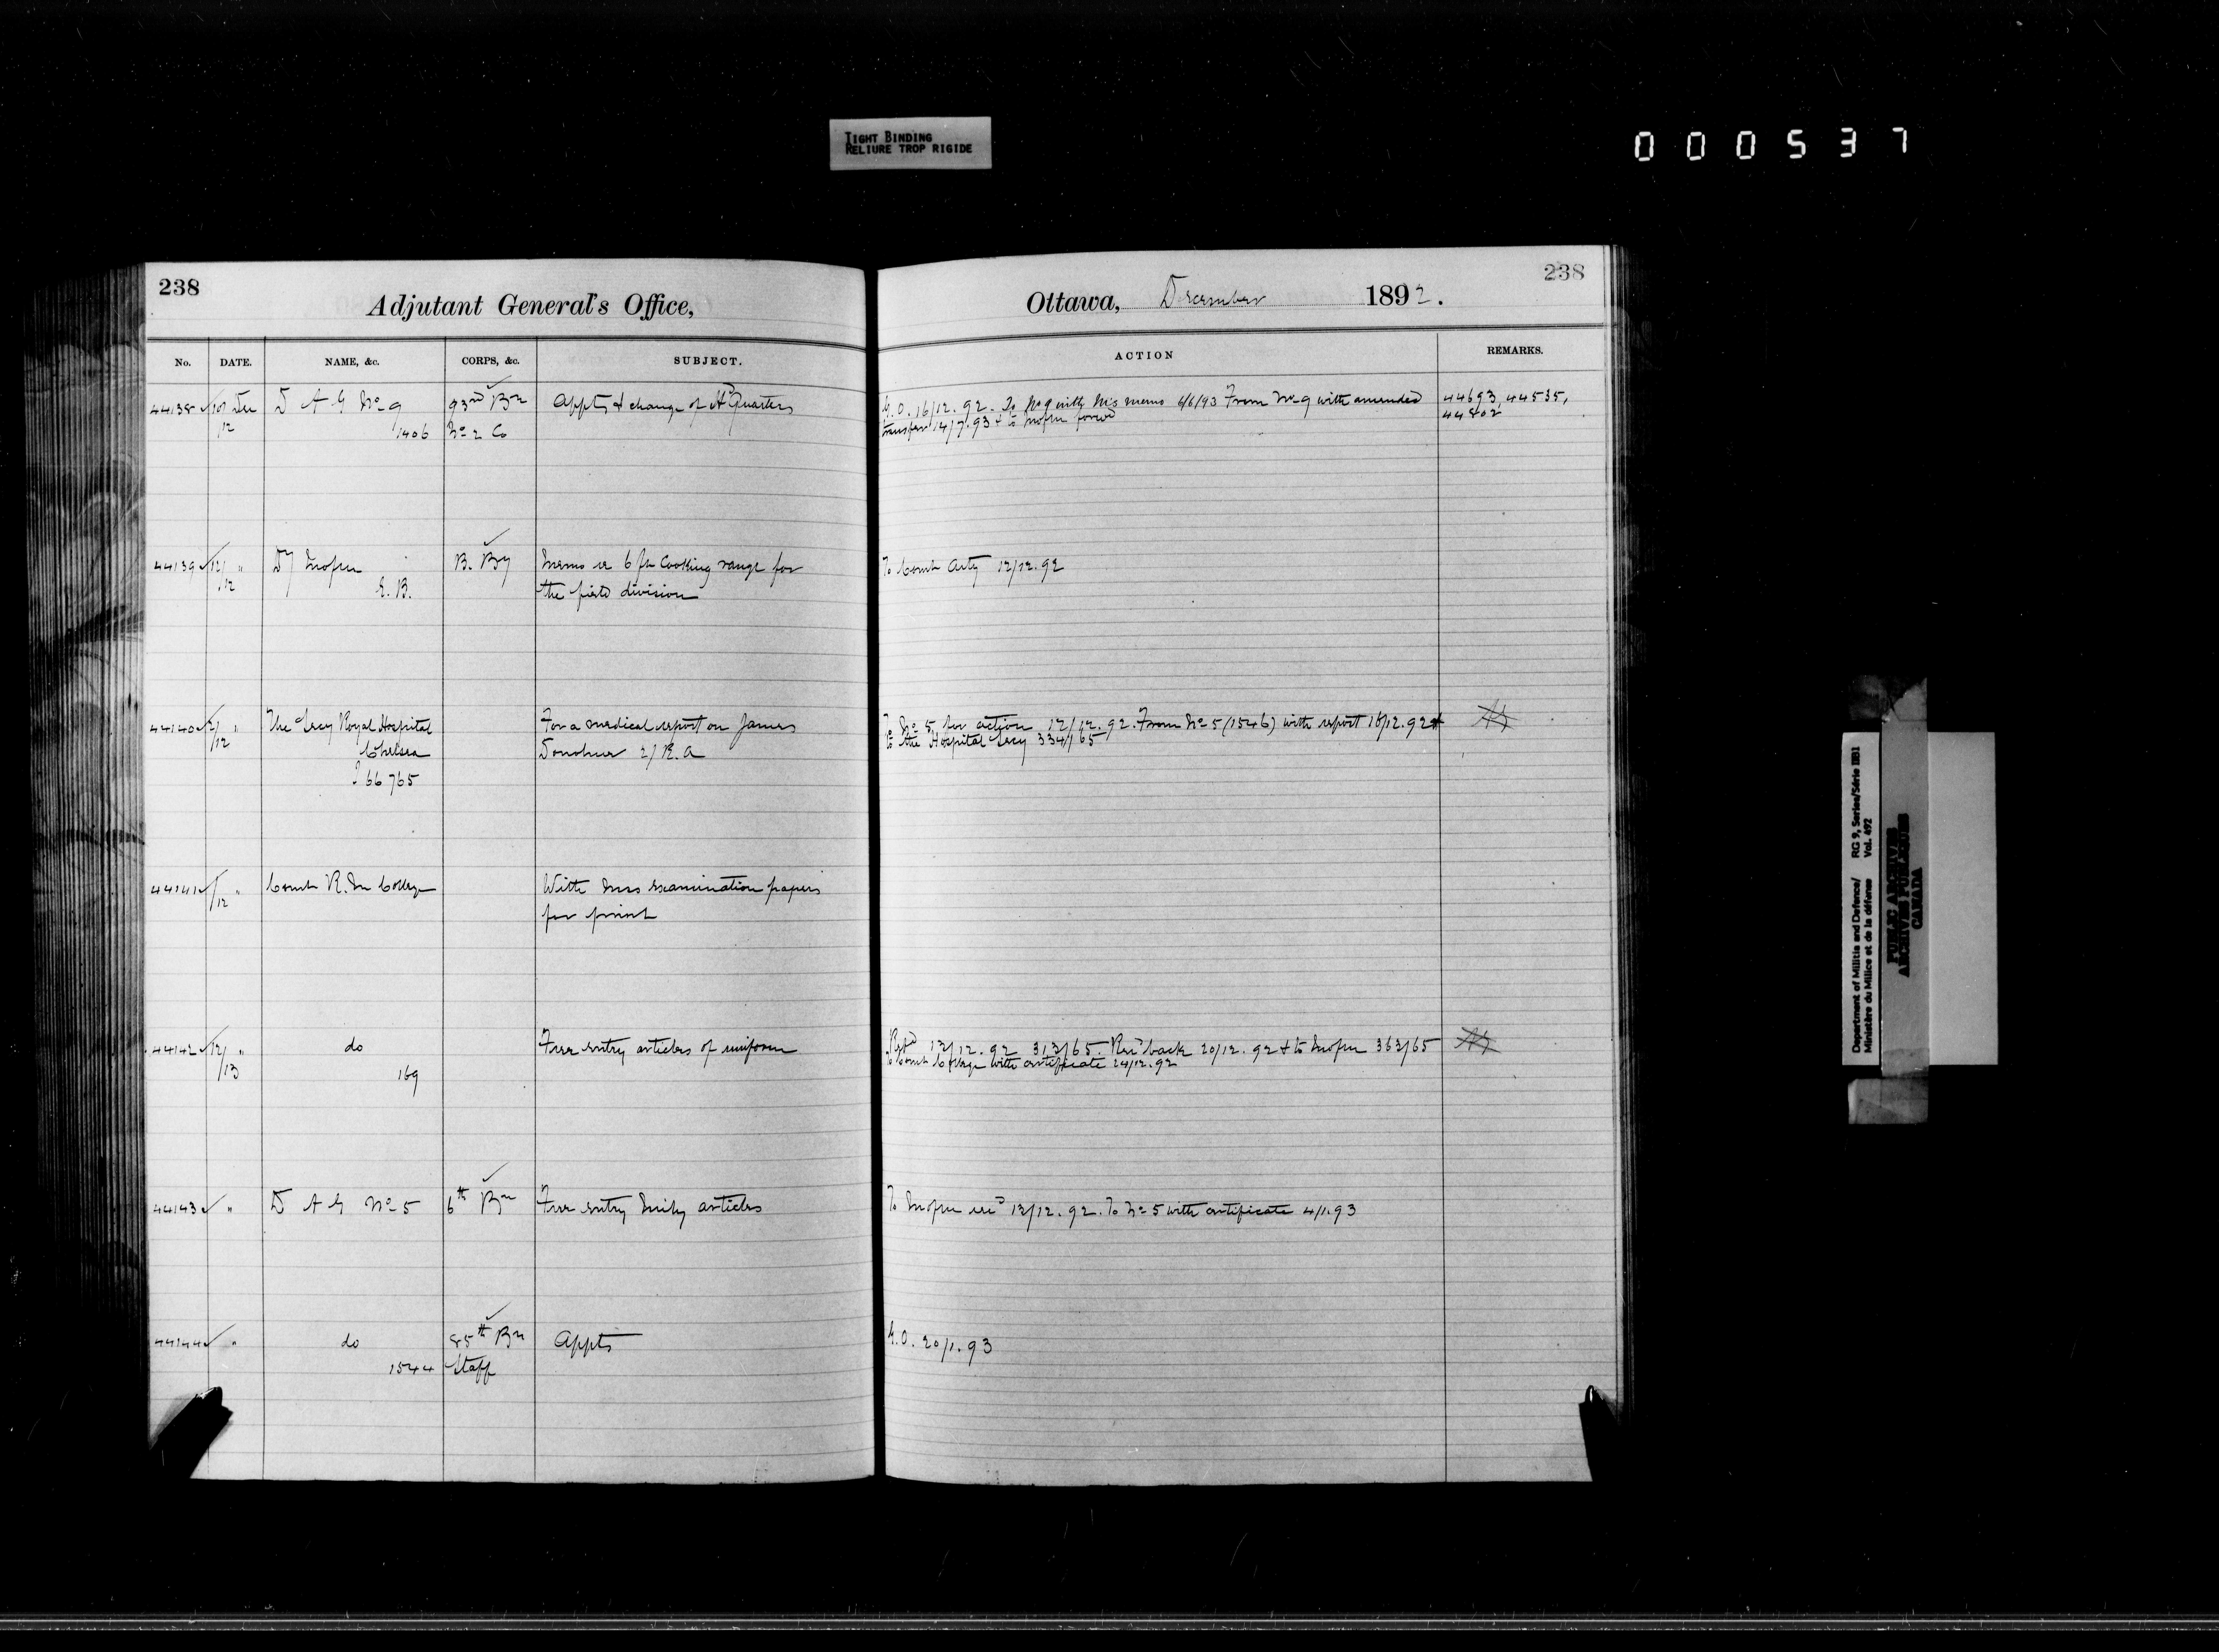 TIGHT BINDING
RELIURE TROP RIGIDE
000537
238
Adjutant General's Office,
No. DATE. NAME, &c. CORPS, &c. SUBJECT.
44138 10 Dec D A G No 9 93rd Bn Appts & change of Hd Quarters
12 1406 No 2 Co
44139 12/ " B. By Memo re 6 ft Cooking range for
12 E. B. the field division
44140 " The Secy Royal Hospital For a medical report on James
12 Chelsea Donohue R.A
66765
44141 " Comdt R. M College With exam examination papers
12 for print
44142 12/ " do Free entry articles of uniform
13 169
44143 " D A G No 5 6th Bn Free entry Mily articles
44144 " do 85th Bn Appts
1544 Staff
238
Ottawa, December 1892.
ACTION REMARKS.
G.O. 16/12.92. To No 9 with his memo 6/6/93 From No 9 with amended 44693, 44535,
transfer 14/7.93 & to 44802
To Comdt Arty 12/12.92
To No 5 for action 12/12.92. From No 5 (1546) with report 16/12.92 &
to the Hospital Secy 334/65
13/12.92 313/65. Recd back 20/12.92 & to 363/65
to Comdt College with certificate 24/12.92
To 13/12.92. To No 5 with certificate 4/1.93
G.O. 20/1.93
Department of Militia and Defence/ RG 9, Series/Série IIB1
Ministère du Milice et de la défense Vol. 692
PUBLIC ARCHIVES
ARCHIVES PUBLIQUES
CANADA